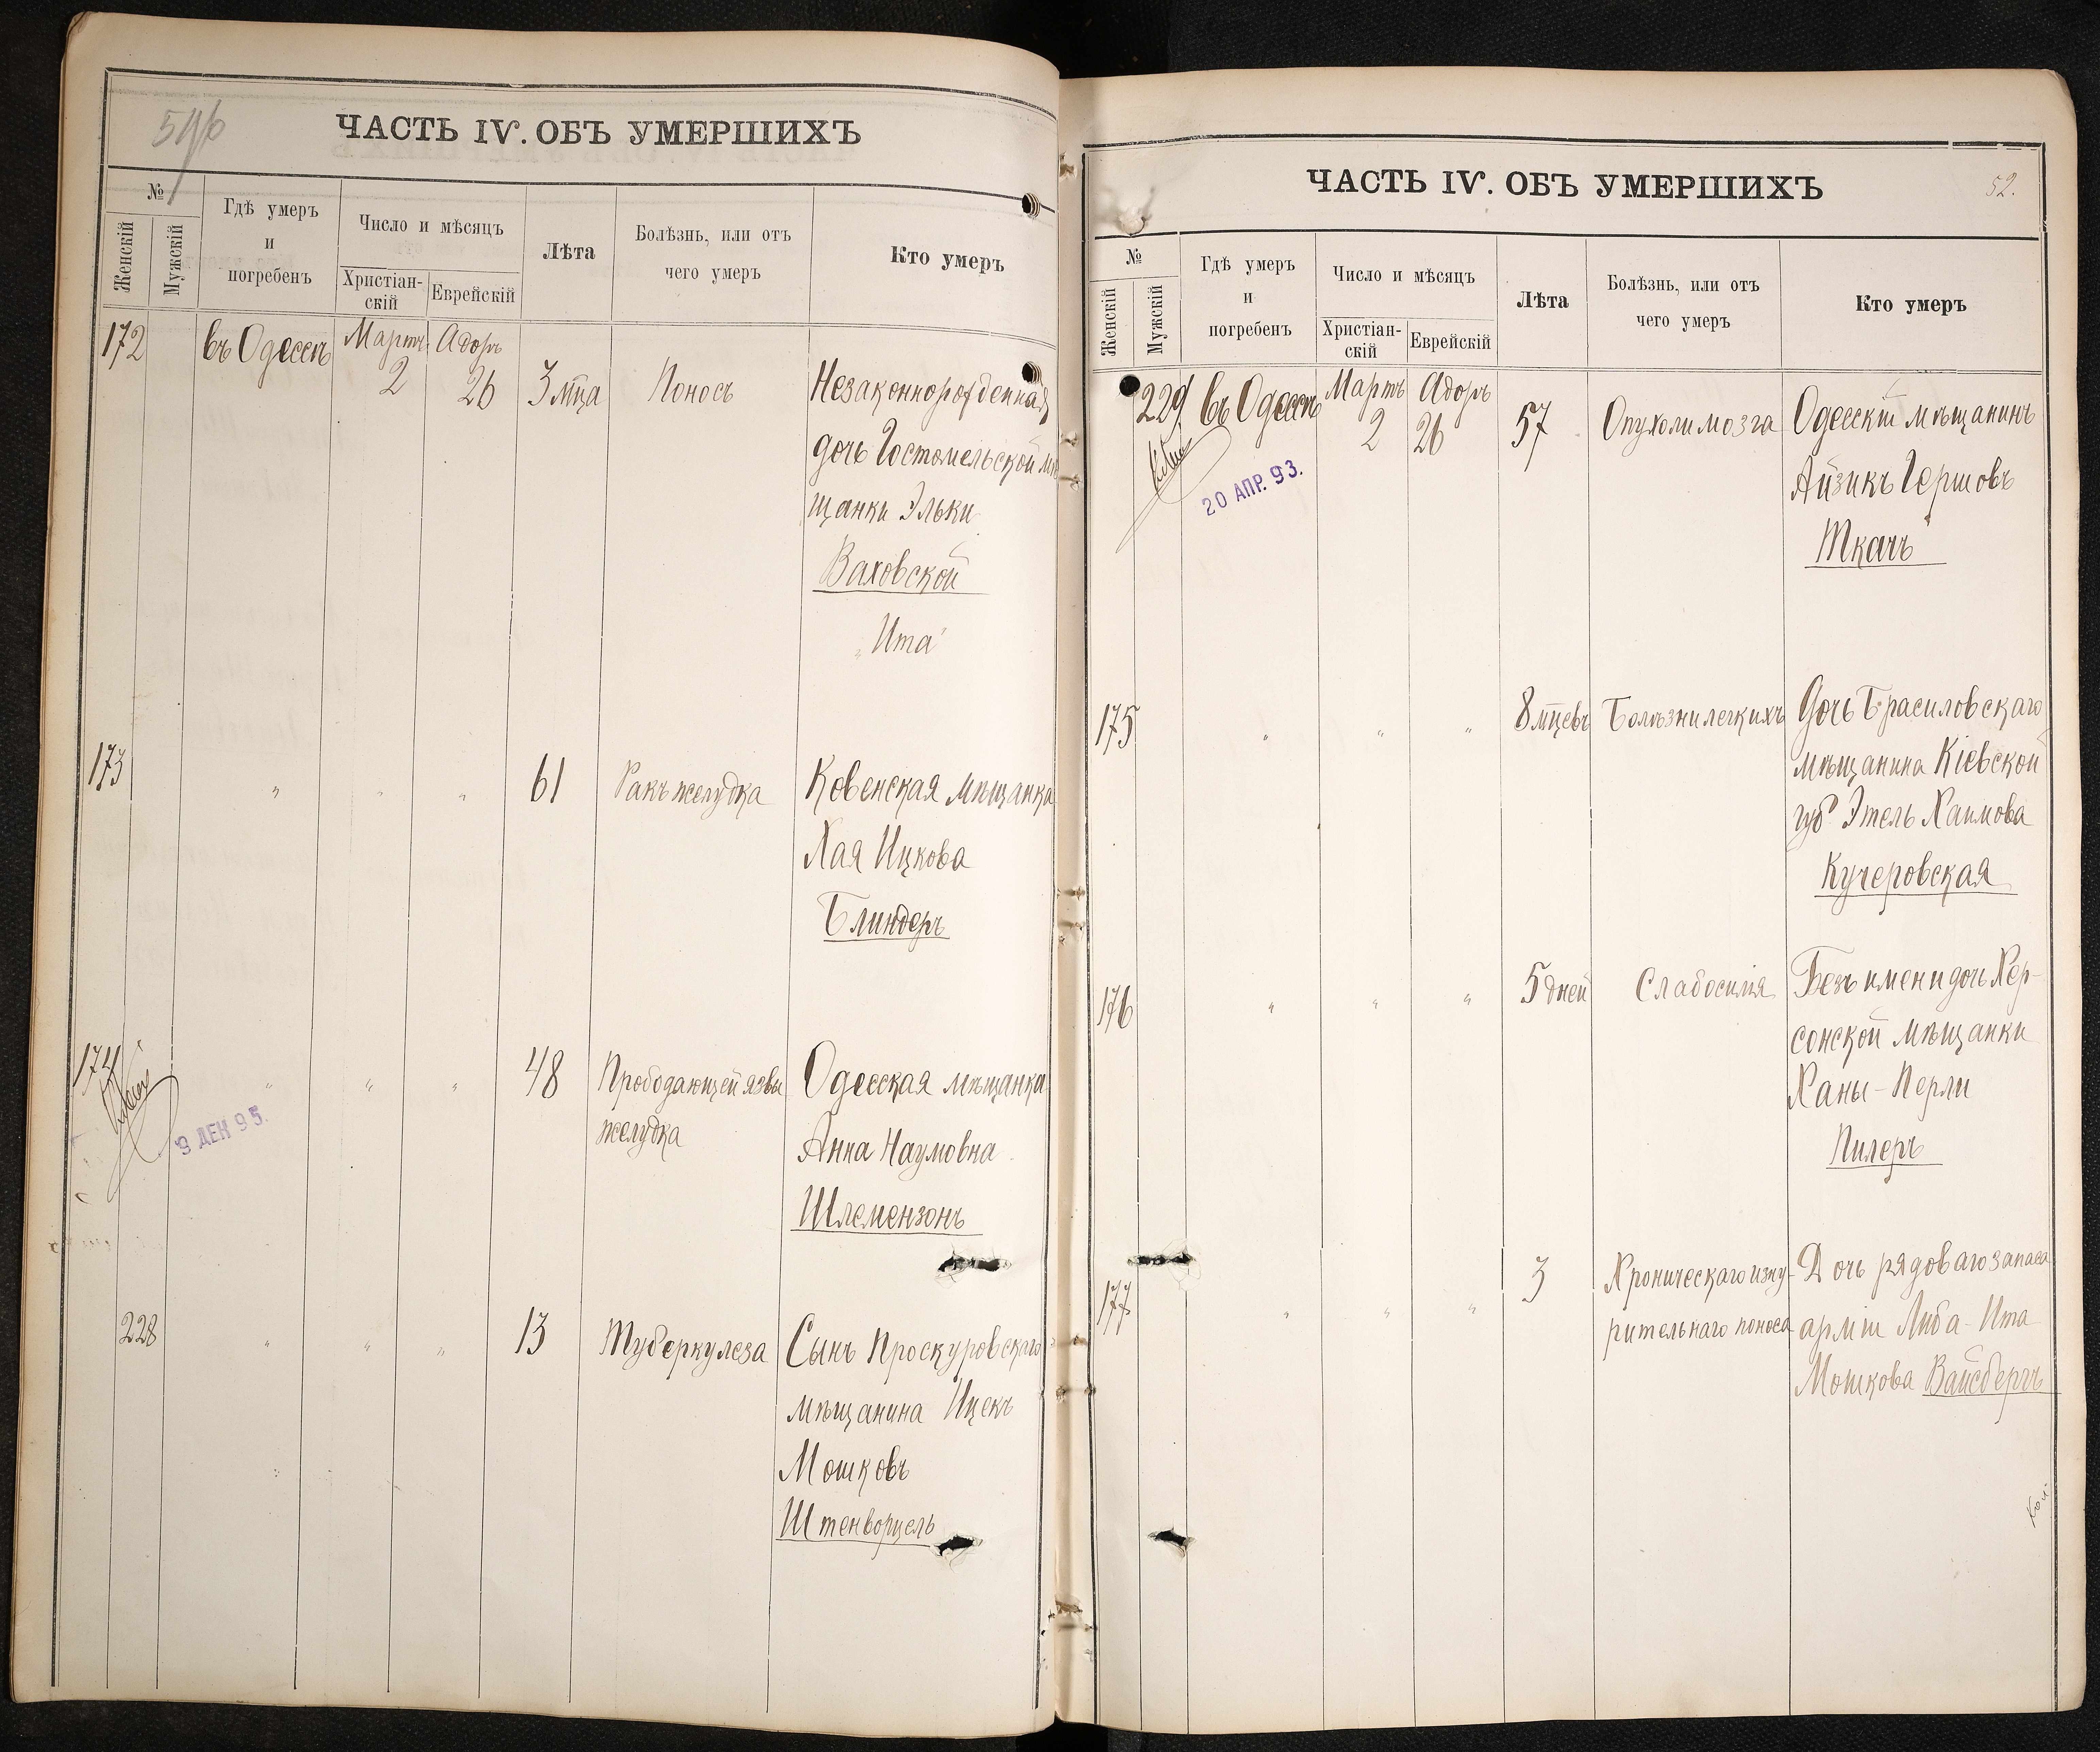 ЧАСТЬ IV. ОБЪ УМЕРШИХЪ
№
Женскій
Мужскій
Гдѣ умеръ
и
погребенъ
Число и мѣсяцъ
Христіан-
скій
Еврейскій
Лѣта
Болѣзнь, или отъ
чего умеръ
Кто умеръ
172 въ Одессѣ Мартъ 2 Адоръ 26 3 мца Поносъ Незаконнорожденная
дочь Гостомельской мѣ
щанки Эльки
Ваховской
„Ита"
173 „ „ „ 61 Ракъ желудка Ковенская мѣщанка
Хая Ицкова
Блиндеръ
174 „ „ „ 48 Прободающей язвы Одесская мѣщанка
желудка Анна Наумовна
9 ДЕК 95.
Шлемензонъ
228 „ „ „ 13 Туберкулеза Сынъ Проскуровскаго
мѣщанина Ицекъ
Мошковъ
Штенворцель
ЧАСТЬ IV. ОБЪ УМЕРШИХЪ
52.
№
Женскій
Мужскій
Гдѣ умеръ
и
погребенъ
Число и мѣсяцъ
Христіан-
скій
Еврейскій
Лѣта
Болѣзнь, или отъ
чего умеръ
Кто умеръ
229 въ Одессѣ Мартъ 2 Адоръ 26 57 Опухоли мозга Одесскій мѣщанинъ
20 АПР. 93.
Айзикъ Гершовъ
Ткачъ
175 „ „ „ 8 мцевъ Болѣзни легкихъ Дочь Брасиловскаго
мѣщанина Кіевской
губ. Этель Хаимова
Кучеровская
176 „ „ „ 5 дней Слабосилія Безъ имени дочь Хер-
сонской мѣщанки
Ханы-Перли
Пилеръ
177 „ „ „ 3 Хроническаго изну- Дочь рядоваго запаса
рительнаго поноса арміи Либа-Ита
Мошкова Вайсбергъ